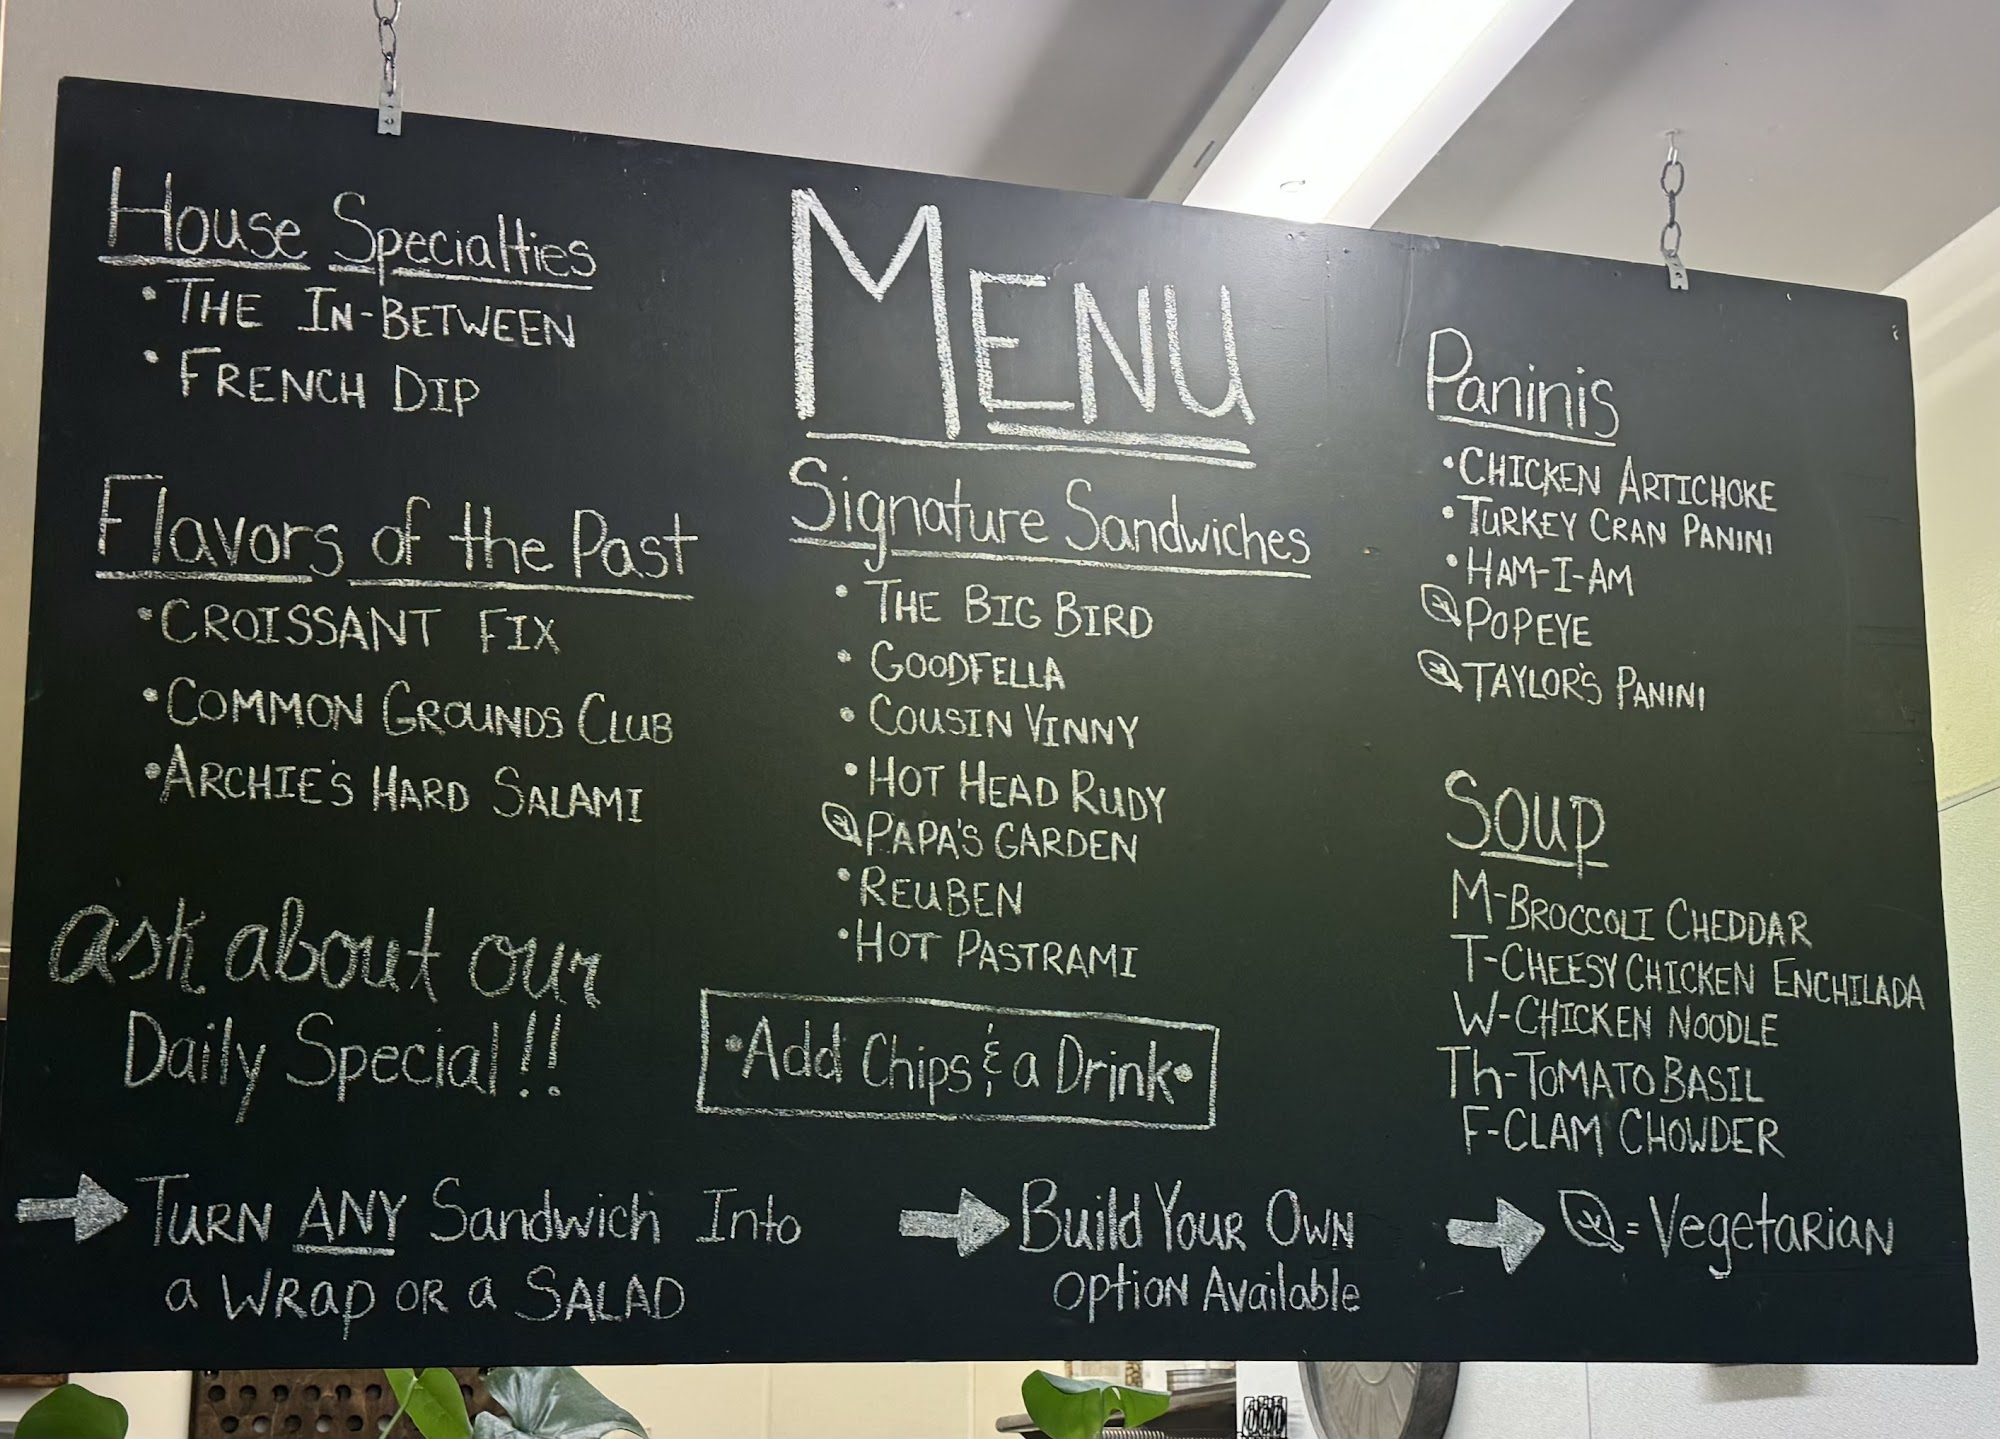 MENU
House Specialties
• THE IN-BETWEEN
• FRENCH DIP
Flavors of the Past
• CROISSANT FIX
• COMMON GROUNDS CLUB
• ARCHIE'S HARD SALAMI
ask about our
Daily Special!!
Signature Sandwiches
• THE BIG BIRD
• GOODFELLA
• COUSIN VINNY
• HOT HEAD RUDY
PAPA'S GARDEN
• REUBEN
• HOT PASTRAMI
• Add Chips & a Drink •
Paninis
• CHICKEN ARTICHOKE
• TURKEY CRAN PANINI
• HAM-I-AM
POPEYE
TAYLOR'S PANINI
SOUP
M-BROCCOLI CHEDDAR
T-CHEESY CHICKEN ENCHILADA
W-CHICKEN NOODLE
Th-TOMATO BASIL
F-CLAM CHOWDER
→ TURN ANY Sandwich Into
a WRAP OR a SALAD
→ Build YOUR OWN
OptioN Available
→ = VegetaRIAN